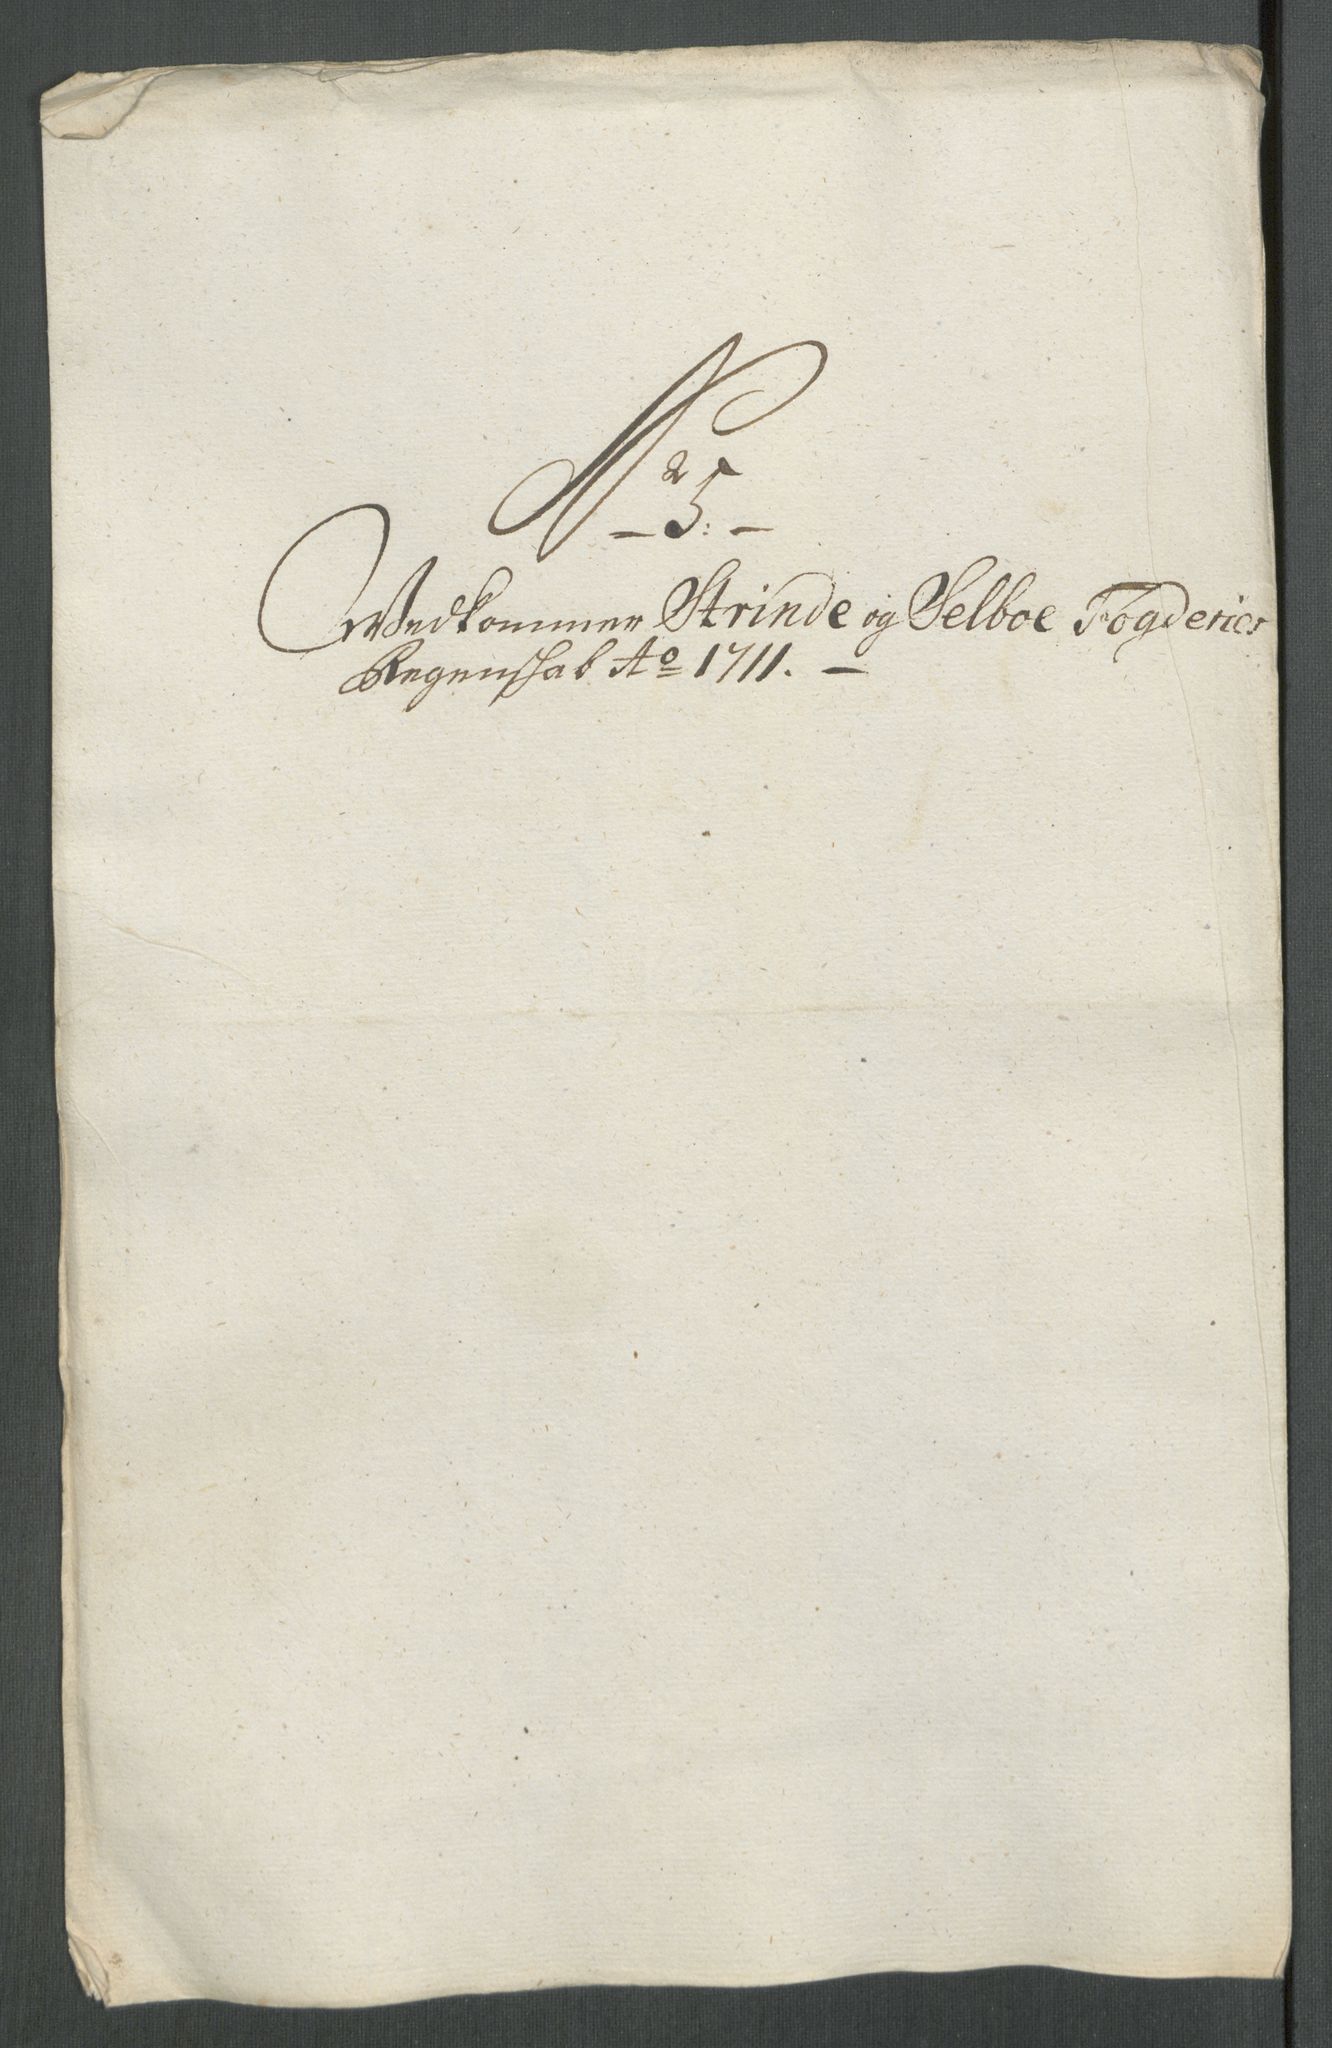 No
5.
Vedkommer Strinde og Selboe Fogderies
Regenskab Ao 1711.